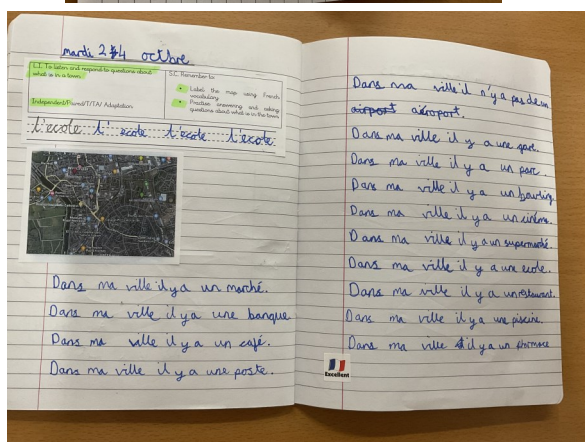 mardi 24 octbre
L.I. To listen and respond to questions about what is in a town.
Independent/Paired/T/TA/ Adaptation
S.C. Remember to:
• Label the map using French vocabulary
• Practise answering and asking questions about what is in the town
l'ecole l' ecole l'ecole l'ecole
Dans ma ville il y a un marché.
Dans ma ville il y a une banque
Dans ma ville il y a un café.
Dans ma ville il y a une poste.
Excellent
Dans ma ville il n'y a pas de un
airport aéroport.
Dans ma ville il y a une gare.
Dans ma ville il y a un parc.
Dans ma ville il y a un bowling
Dans ma ville il y a un cinéma.
Dans ma ville il y a un supermarché.
Dans ma ville il y a une ecole.
Dans ma ville il y a un restaurant.
Dans ma ville il y a une piscine.
Dans ma ville il y a un